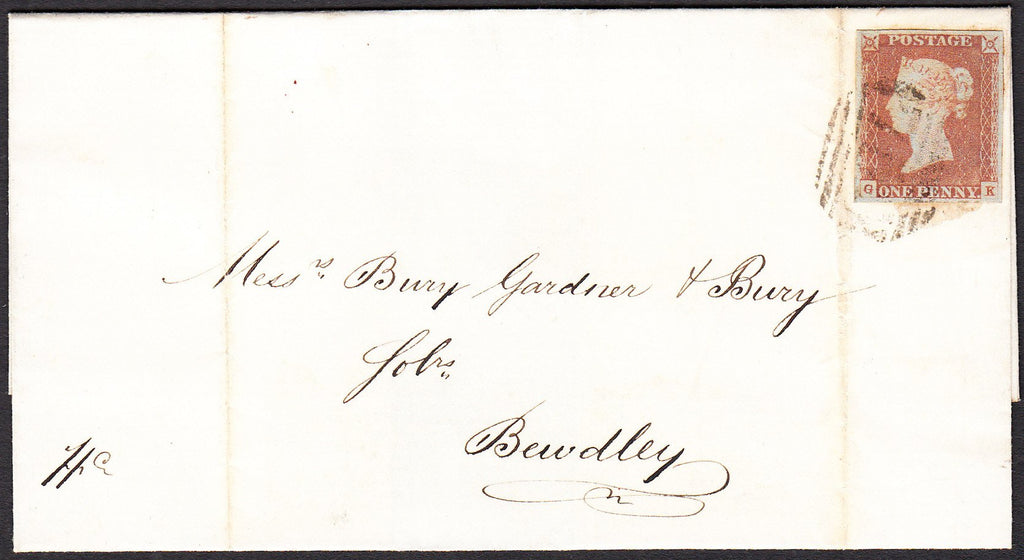 POSTAGE
G ONE PENNY K
Messrs Bury Gardner & Bury
Solrs
Bewdley